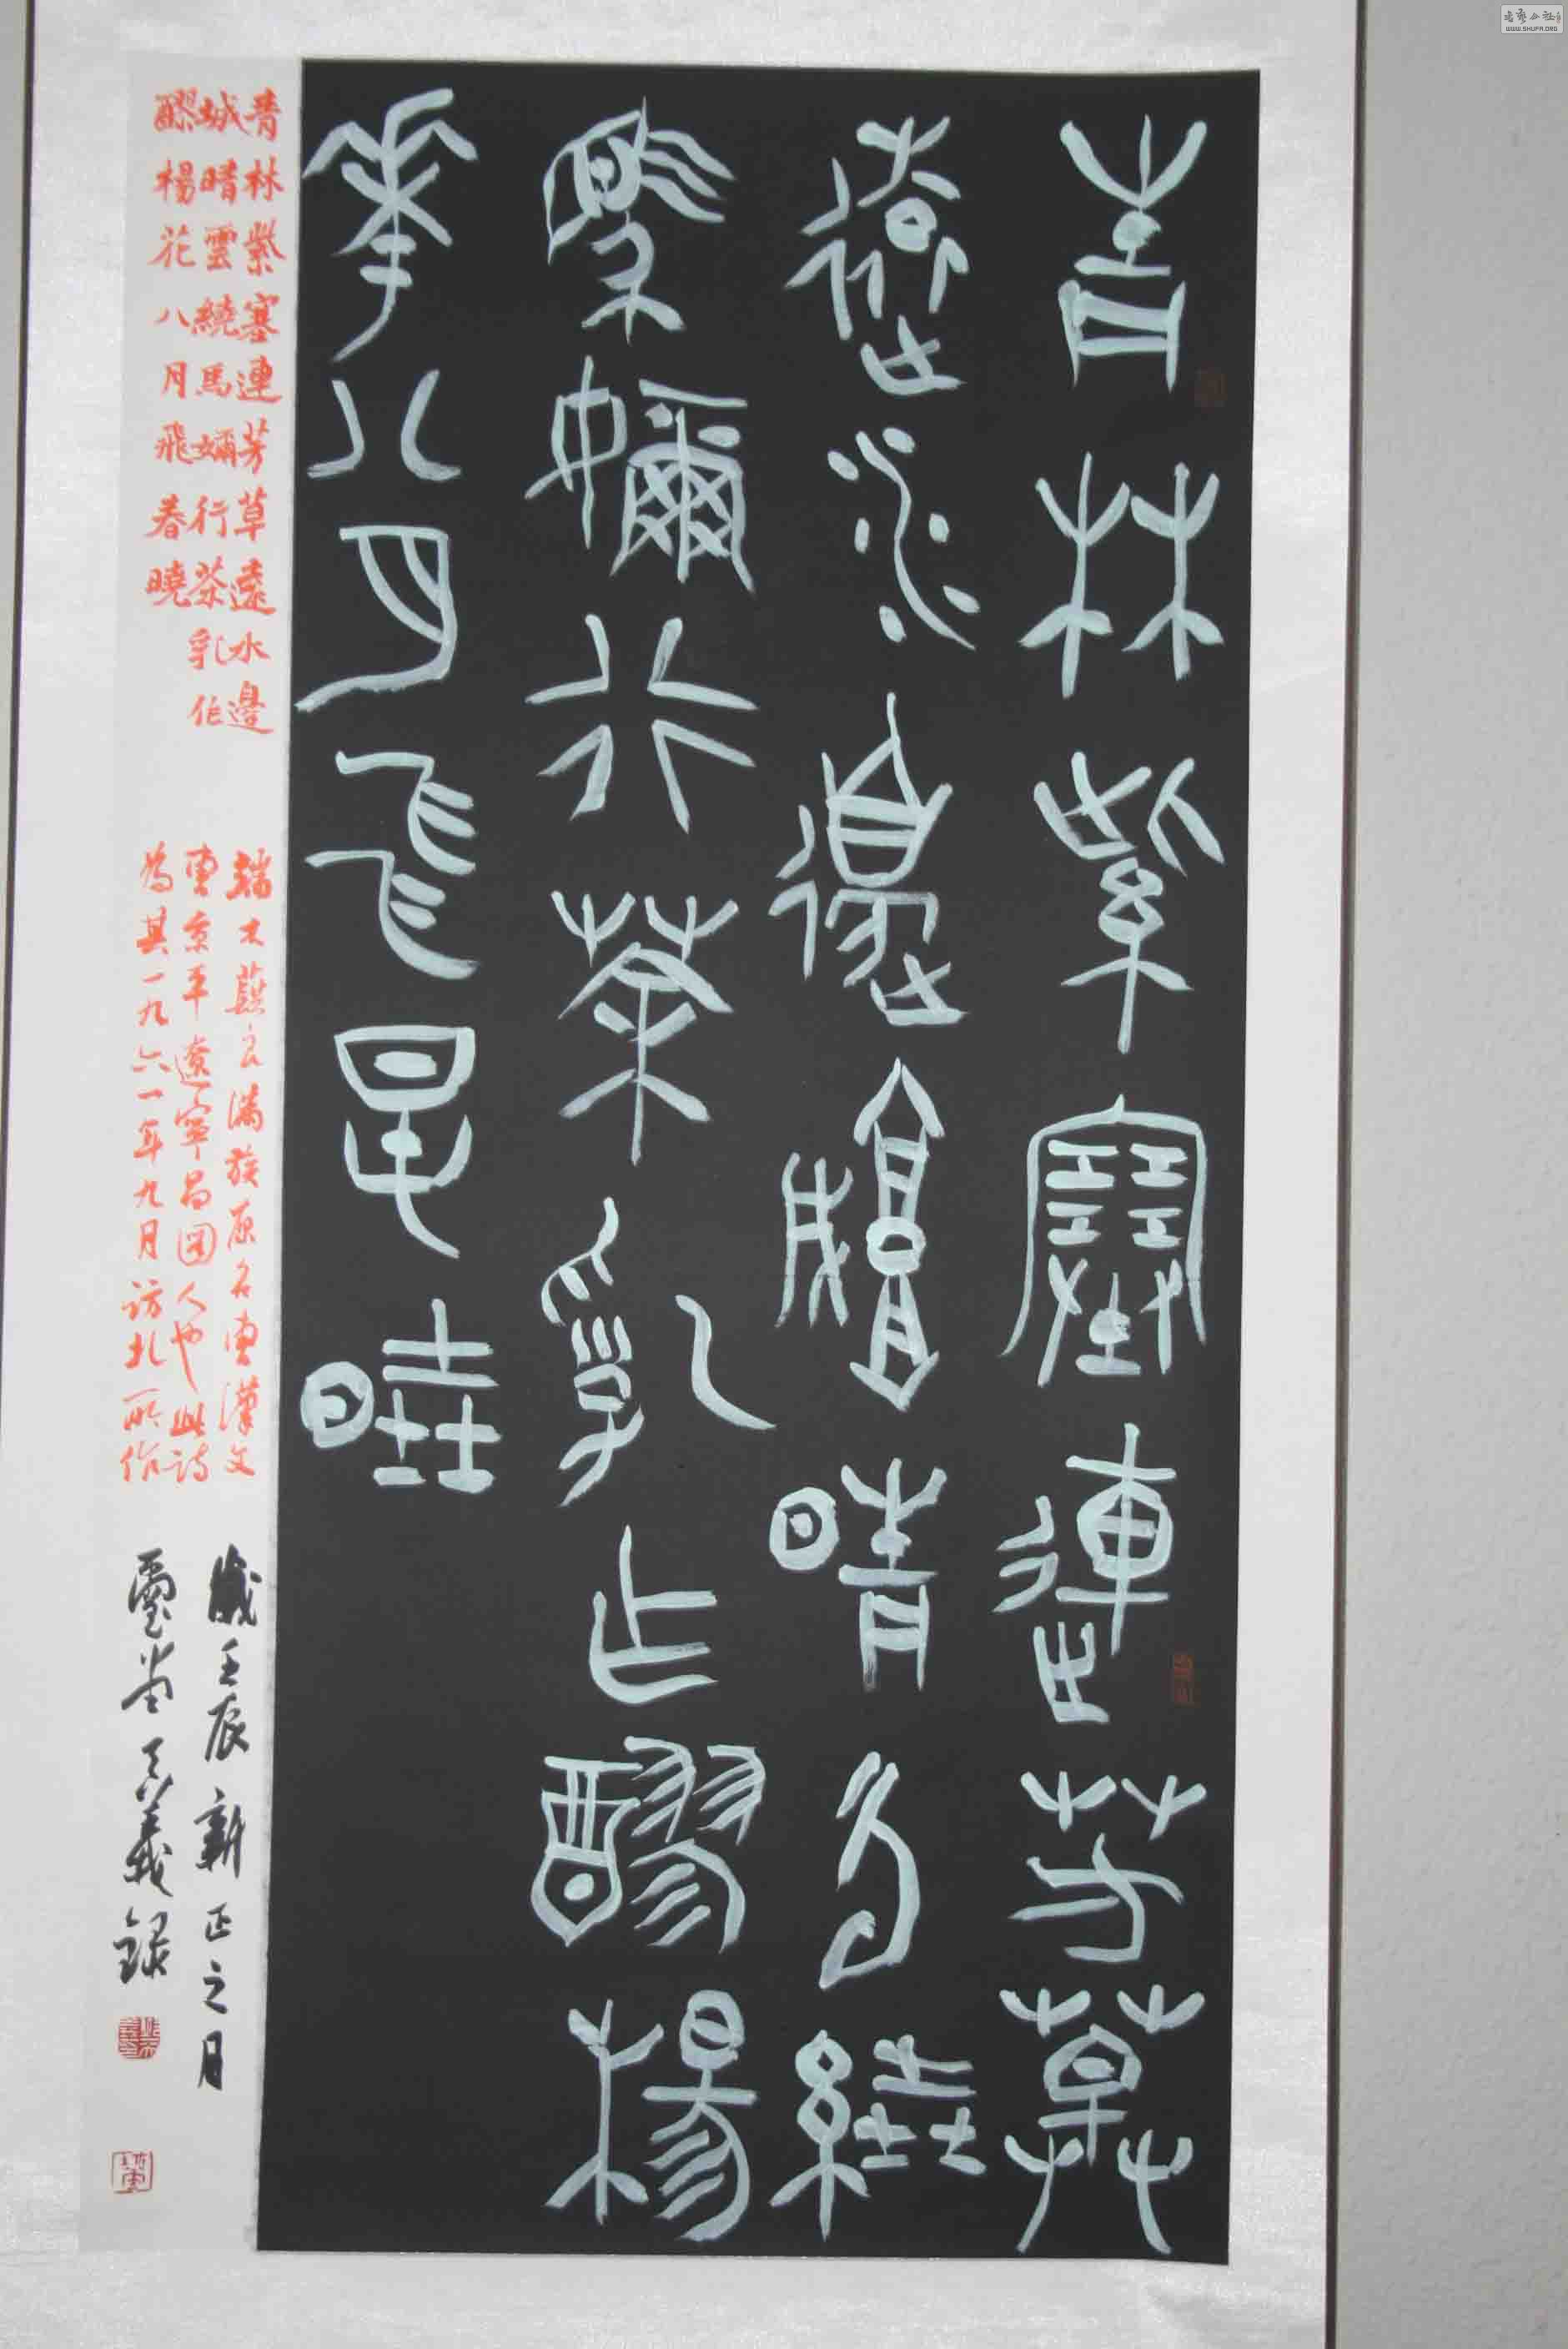 青林紫塞連芳草
遠水邊城晴雲繞
馬嬭行茶乳作醪楊
華八月飛春曉
青林紫塞連芳草遠水邊
城晴雲繞馬嬭行茶乳作
醪楊花八月飛春曉
端木蕻良滿族原名曹漢文
曹京平遼寧昌图人也此詩
為其一九六一年九月访北所作
歲壬辰新正之月
義錄
WWW.SHUFA.ORG